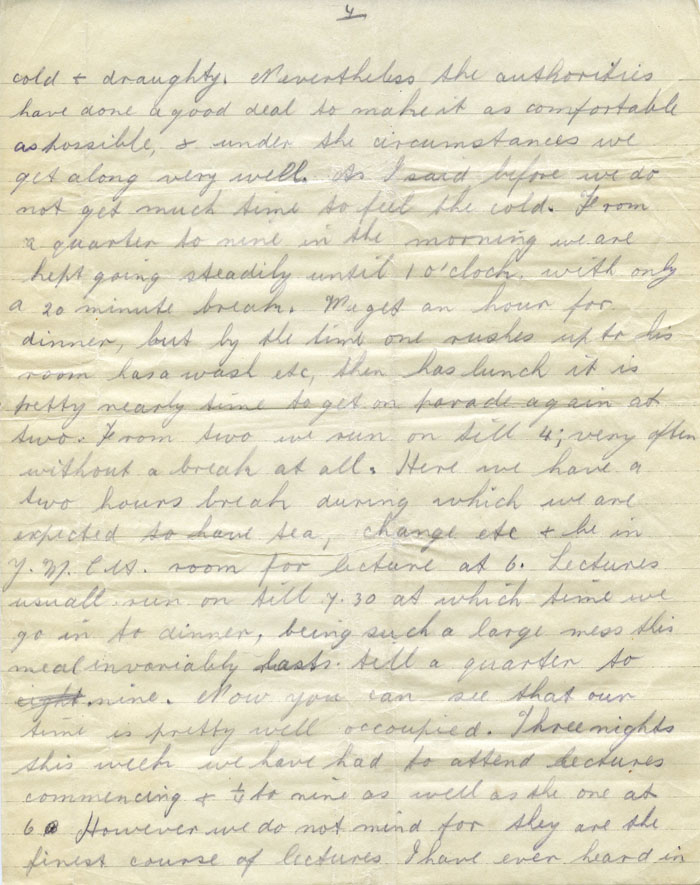 4
cold & draughty. Nevertheless the authorities
have done a good deal to make it as comfortable
as possible, & under the circumstances we
get along very well. As I said before we do
not get much time to feel the cold. From
a quarter to nine in the morning we are
kept going steadily until 1 o'clock, with only
a 20 minute break. We get an hour for
dinner, but by the time one rushes up to his
room has a wash etc, then has lunch it is
pretty nearly time to get on parade again at
two. From two we run on till 4; very often
without a break at all. Here we have a
two hours break during which we are
expected to have tea, change etc & be in
Y.M.C.A. room for lecture at 6. Lectures
usuall run on till 7.30 at which time we
go in to dinner, being such a large mess this
meal invariably lasts till a quarter to
eight nine. Now you can see that our
time is pretty well occoupied. Three nights
this week we have had to attend lectures
commencing & ¼ to nine as well as the one at
6 However we do not mind for they are the
finest course of lectures I have ever heard in